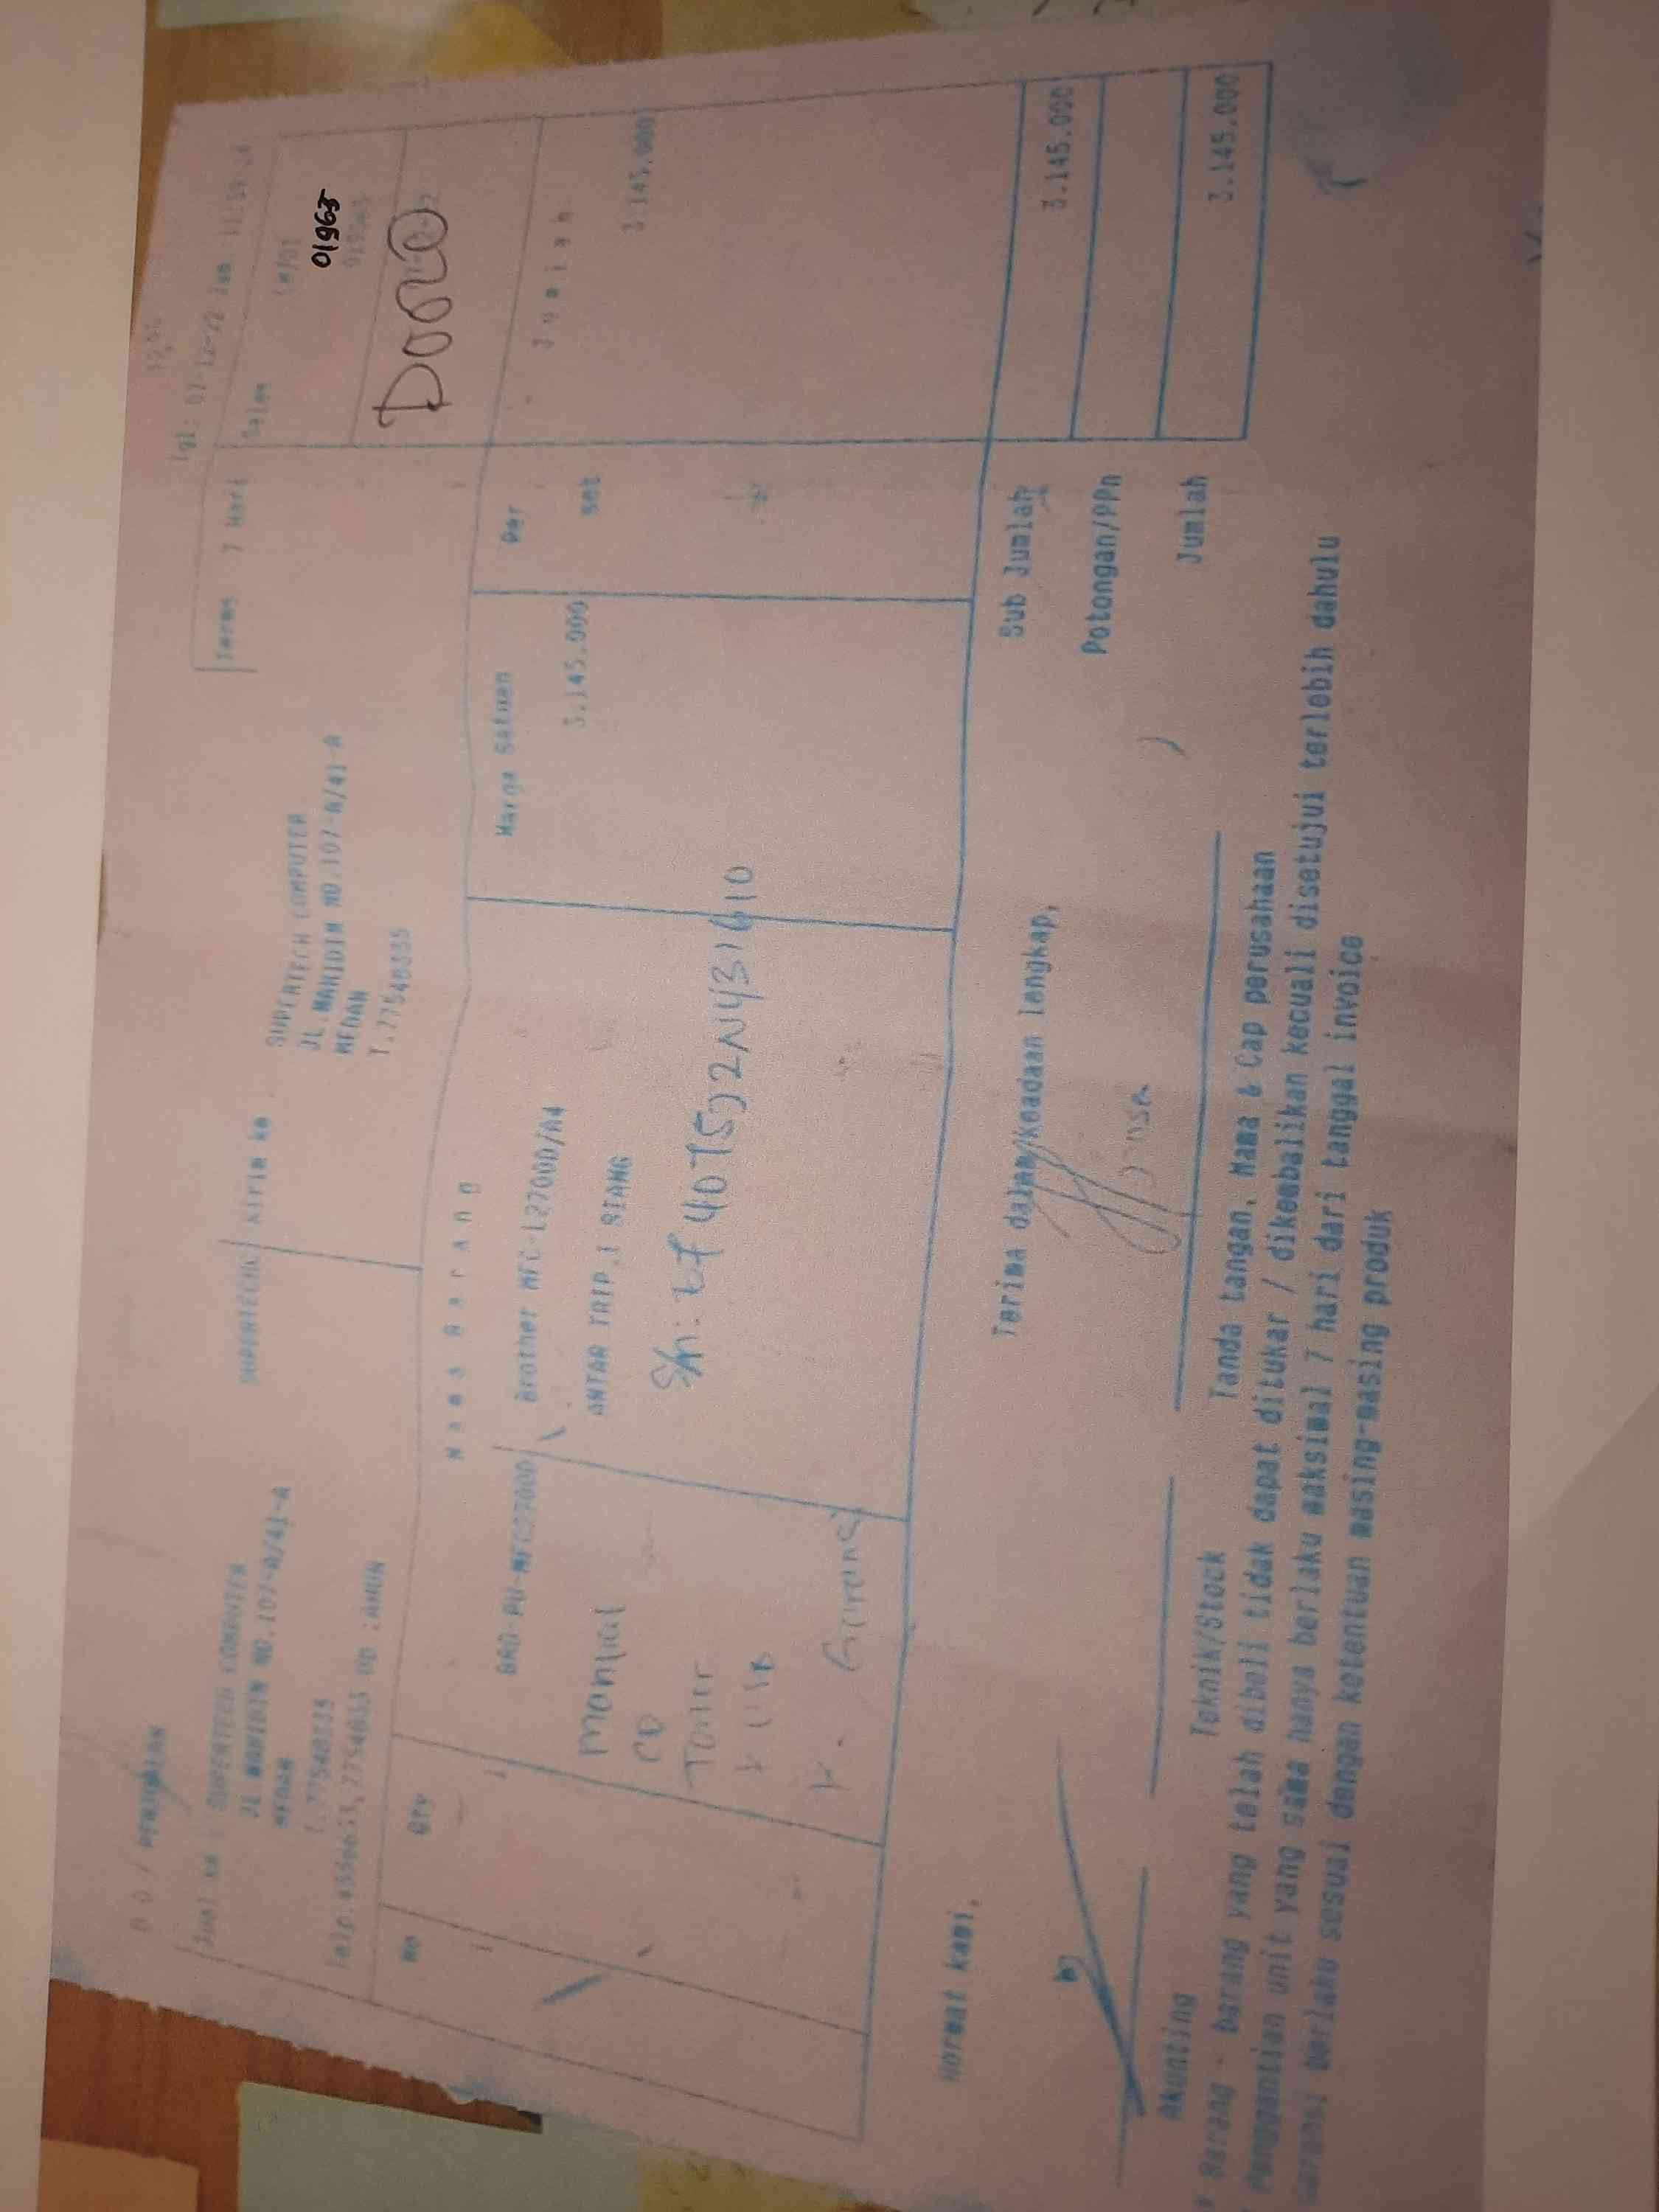 D O / PENJUALAN
Tgl: 07-12-22 Jam: 11:59:
Jual ke : SUPERTECH COMPUTER
JL.WAHIDIN NO.107-A/41-A
MEDAN
T.77540335
SUPERTECH
Kirim ke
SUPERTECH COMPUTER
JL.WAHIDIN NO.107-A/41-A
MEDAN
T.77540335
Terms 7 Hari
Sales
01965
01965
Done
No Qty Nama Barang Harga Satuan Per Jumlah
1 1 BRO-PU-MFC2700D Brother MFC-L2700D/A4 3.145.000 set 3.145.000
ANTAR TRIP.1 SIANG
Manual
CD
Toner
K USB
K. Garansi
Hormat kami,
Terima dalam/Keadaan lengkap,
Sub Jumlah 3.145.000
Potongan/PPn
Jumlah 3.145.000
Akunting
Teknik/Stock
Tanda tangan, Nama & Cap perusahaan
* Barang - barang yang telah dibeli tidak dapat ditukar / dikembalikan kecuali disetujui terlebih dahulu
Penggantian unit yang sama hanya berlaku maksimal 7 hari dari tanggal invoice
Garansi berlaku sesuai dengan ketentuan masing-masing produk